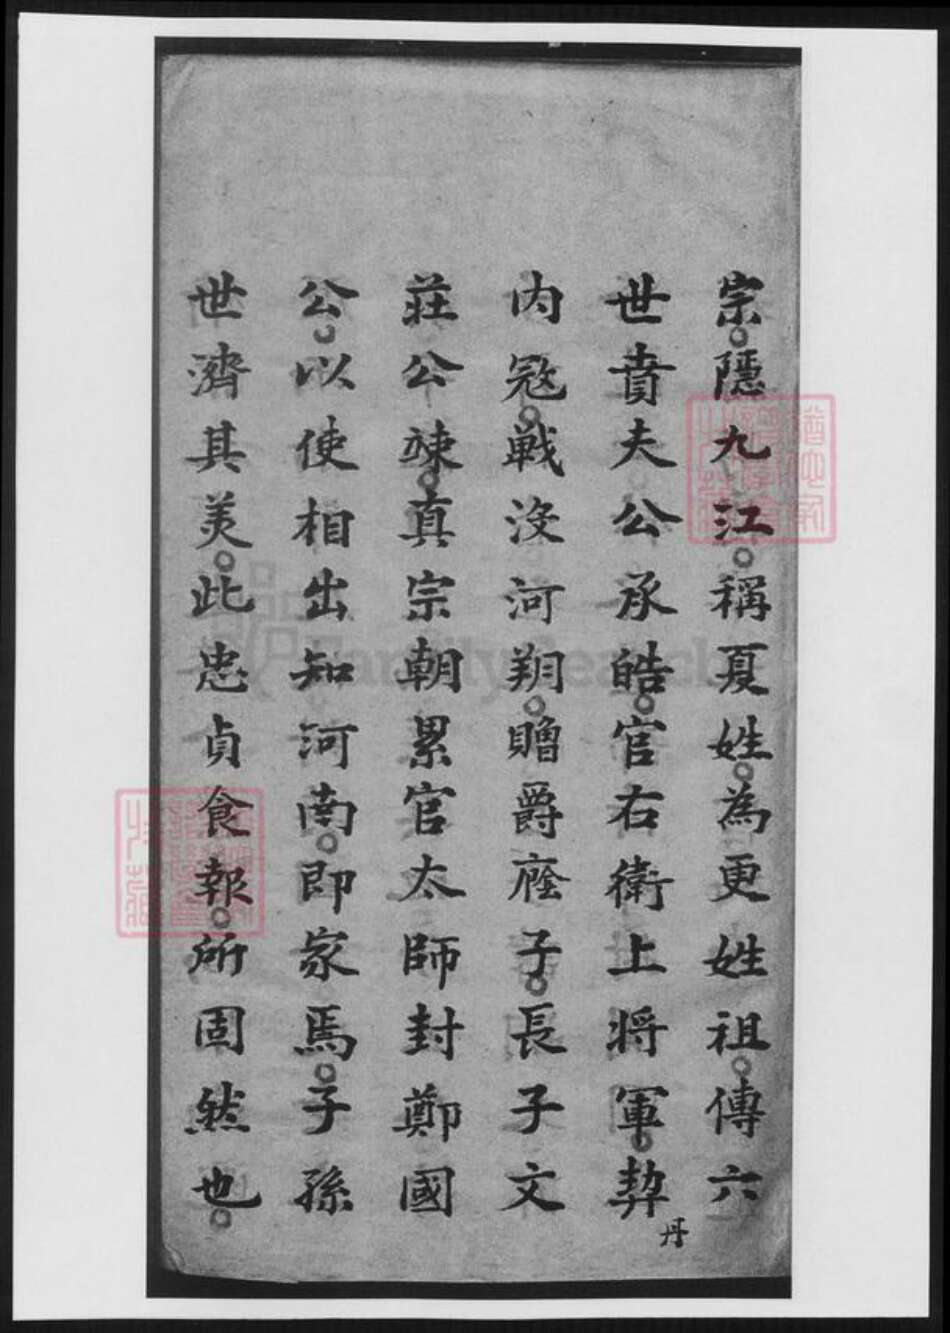 宗。隱九江。稱夏姓。為更姓祖。傳六
世賁夫公承皓。官右衛上將軍。契丹
内宼。戰沒河翔。贈爵廕子。長子文
莊公竦。真宗朝累官太師封鄭國
公。以使相出知河南。即家焉。子孫
世濟其美。此忠貞食報。所固然也。